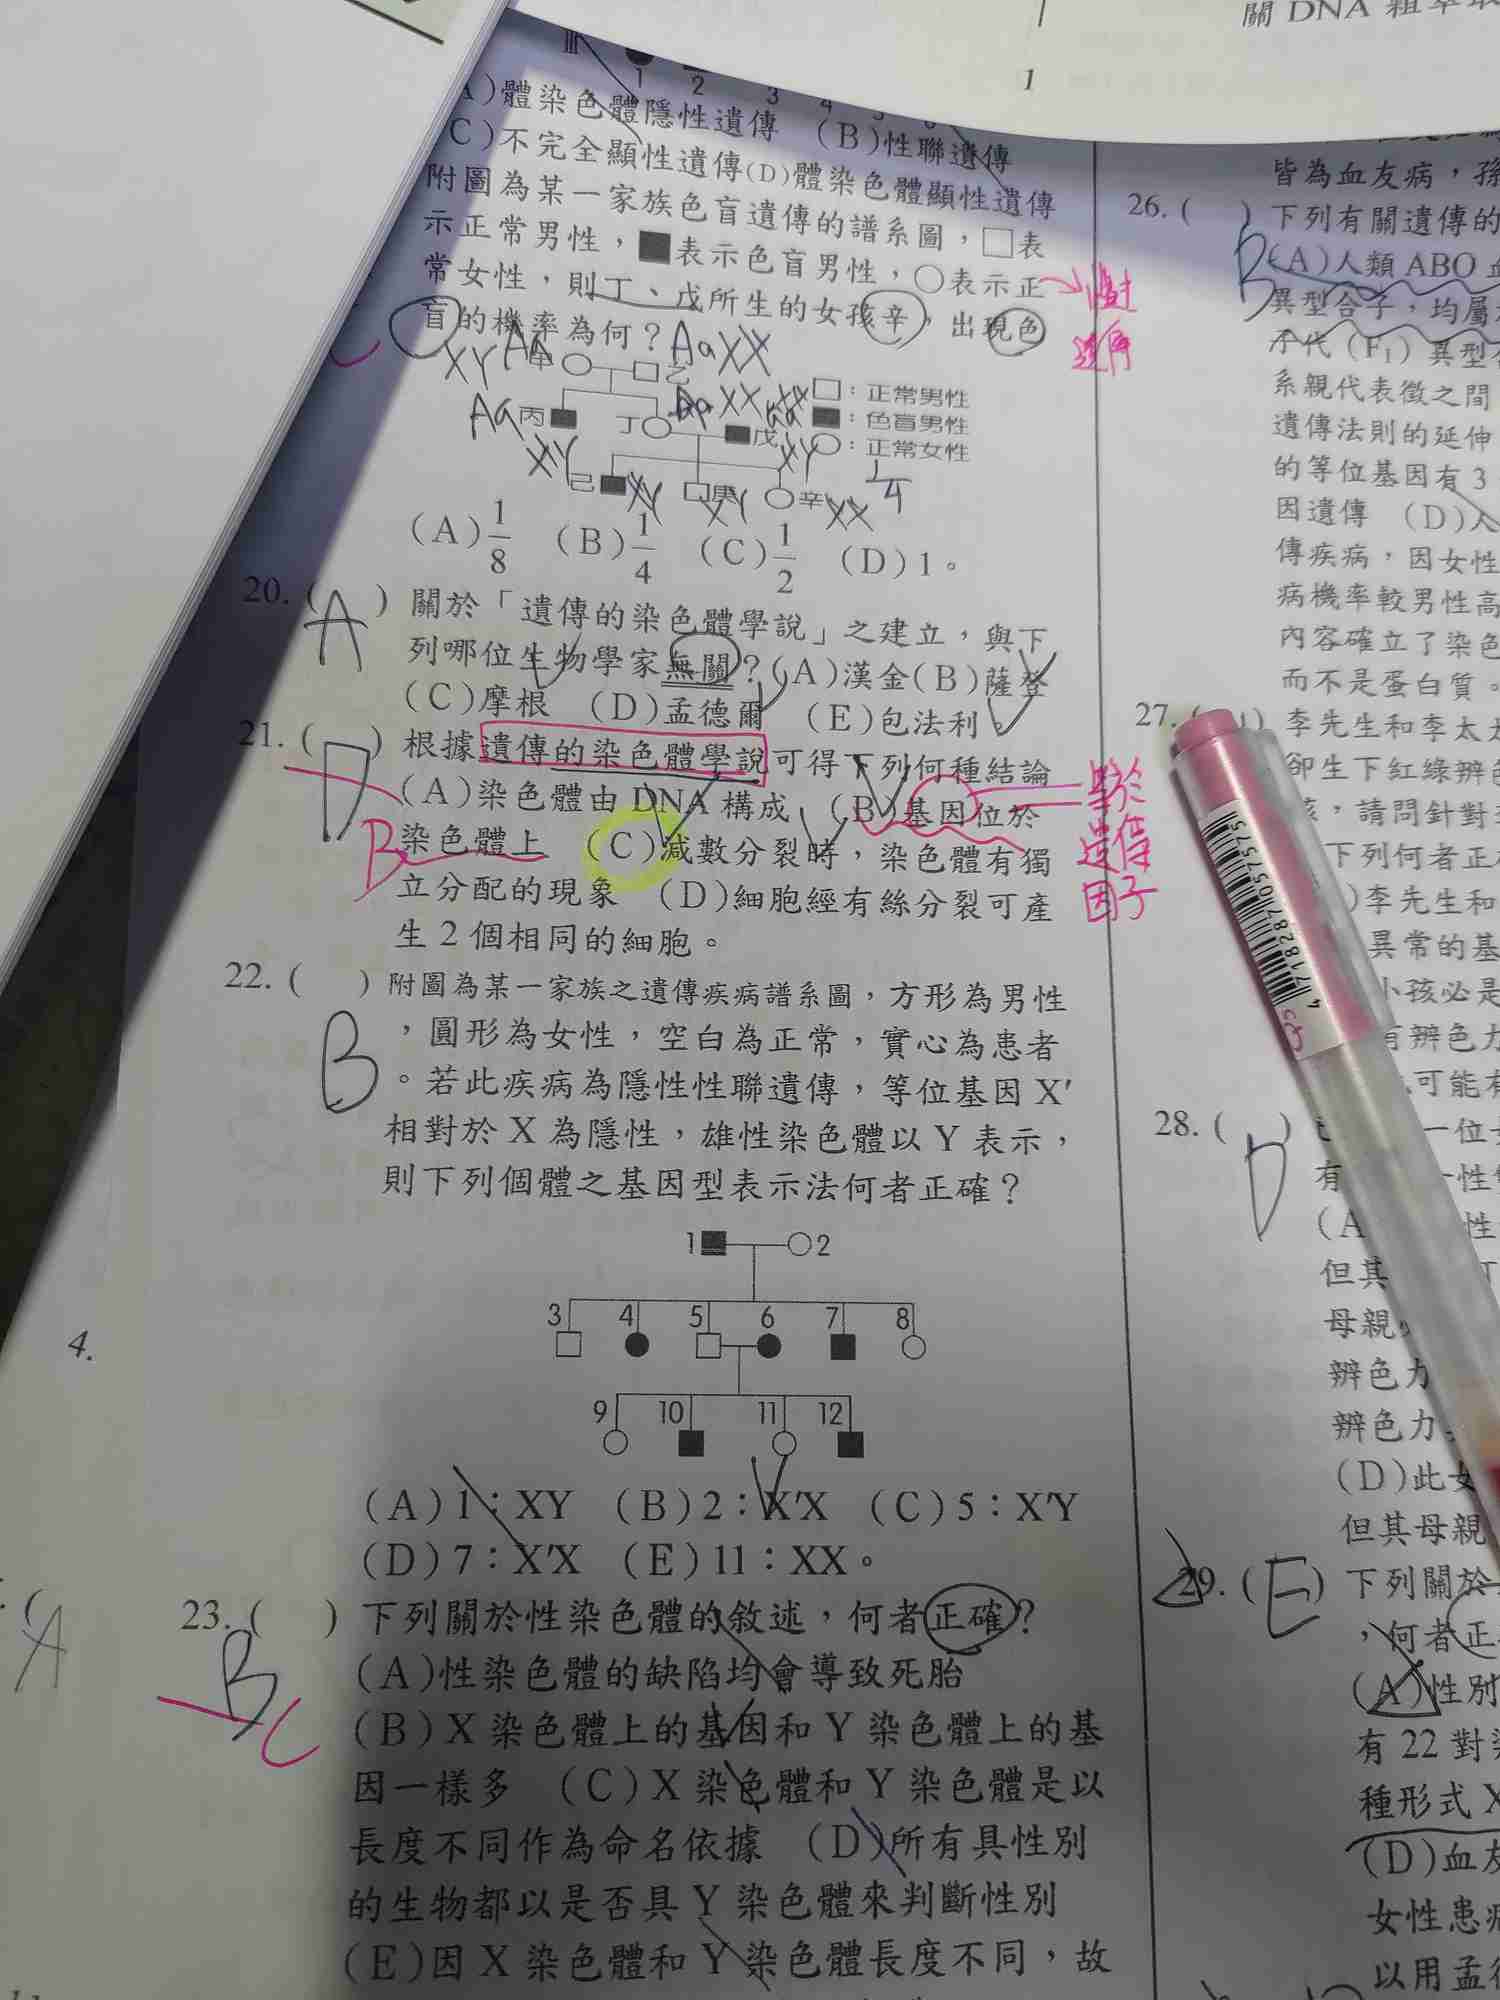 關 DNA 粗萃取
1
1 2 3 4 5 6
A)體染色體隱性遺傳 (B)性聯遺傳
C)不完全顯性遺傳(D)體染色體顯性遺傳
附圖為某一家族色盲遺傳的譜系圖，□表
示正常男性，■表示色盲男性，○表示正
常女性，則丁、戊所生的女孩辛，出現色
盲的機率為何？AaXX
XY Aa 甲 乙
Aa 丙 丁 戊
XY
XY
己 XY 庚 XY 辛 XX
□：正常男性
■：色盲男性
○：正常女性
1/4
(A)1/8 (B)1/4 (C)1/2 (D)1。
C
20.(A)關於「遺傳的染色體學說」之建立，與下
列哪位生物學家無關？(A)漢金(B)薩登
(C)摩根 (D)孟德爾 (E)包法利。
21.(D)根據遺傳的染色體學說可得下列何種結論
(A)染色體由 DNA 構成 (B)基因位於
B 染色體上 (C)減數分裂時，染色體有獨
立分配的現象 (D)細胞經有絲分裂可產
生 2 個相同的細胞。
遺傳
因子
22.( )附圖為某一家族之遺傳疾病譜系圖，方形為男性
B ，圓形為女性，空白為正常，實心為患者
。若此疾病為隱性性聯遺傳，等位基因 X′
相對於 X 為隱性，雄性染色體以 Y 表示，
則下列個體之基因型表示法何者正確？
1 2
3 4 5 6 7 8
9 10 11 12
(A)1：XY (B)2：X′X (C)5：X′Y
(D)7：X′X (E)11：XX。
23.( )下列關於性染色體的敘述，何者正確？
B C
(A)性染色體的缺陷均會導致死胎
(B)X 染色體上的基因和 Y 染色體上的基
因一樣多 (C)X 染色體和 Y 染色體是以
長度不同作為命名依據 (D)所有具性別
的生物都以是否具 Y 染色體來判斷性別
(E)因 X 染色體和 Y 染色體長度不同，故
4.
A
皆為血友病，孫
26.( )下列有關遺傳的
B (A)人類 ABO 血
異型合子，均屬
子代（F₁）異型
系親代表徵之間
遺傳法則的延伸
的等位基因有 3
因遺傳 (D)人
傳疾病，因女性
病機率較男性高
內容確立了染色
而不是蛋白質。
27.( )李先生和李太太
卻生下紅綠辨色
，請問針對
下列何者正確
)李先生和
異常的基
小孩必是
有辨色力
可能有
4 718287 057575
28.( ) 一位女
D 有 性
(A 性
但其
母親
辨色力
辨色力
(D)此女
但其母親
29.(E)下列關於
，何者正
(A)性別
有 22 對染
種形式 X
(D)血友
女性患病
以用孟德